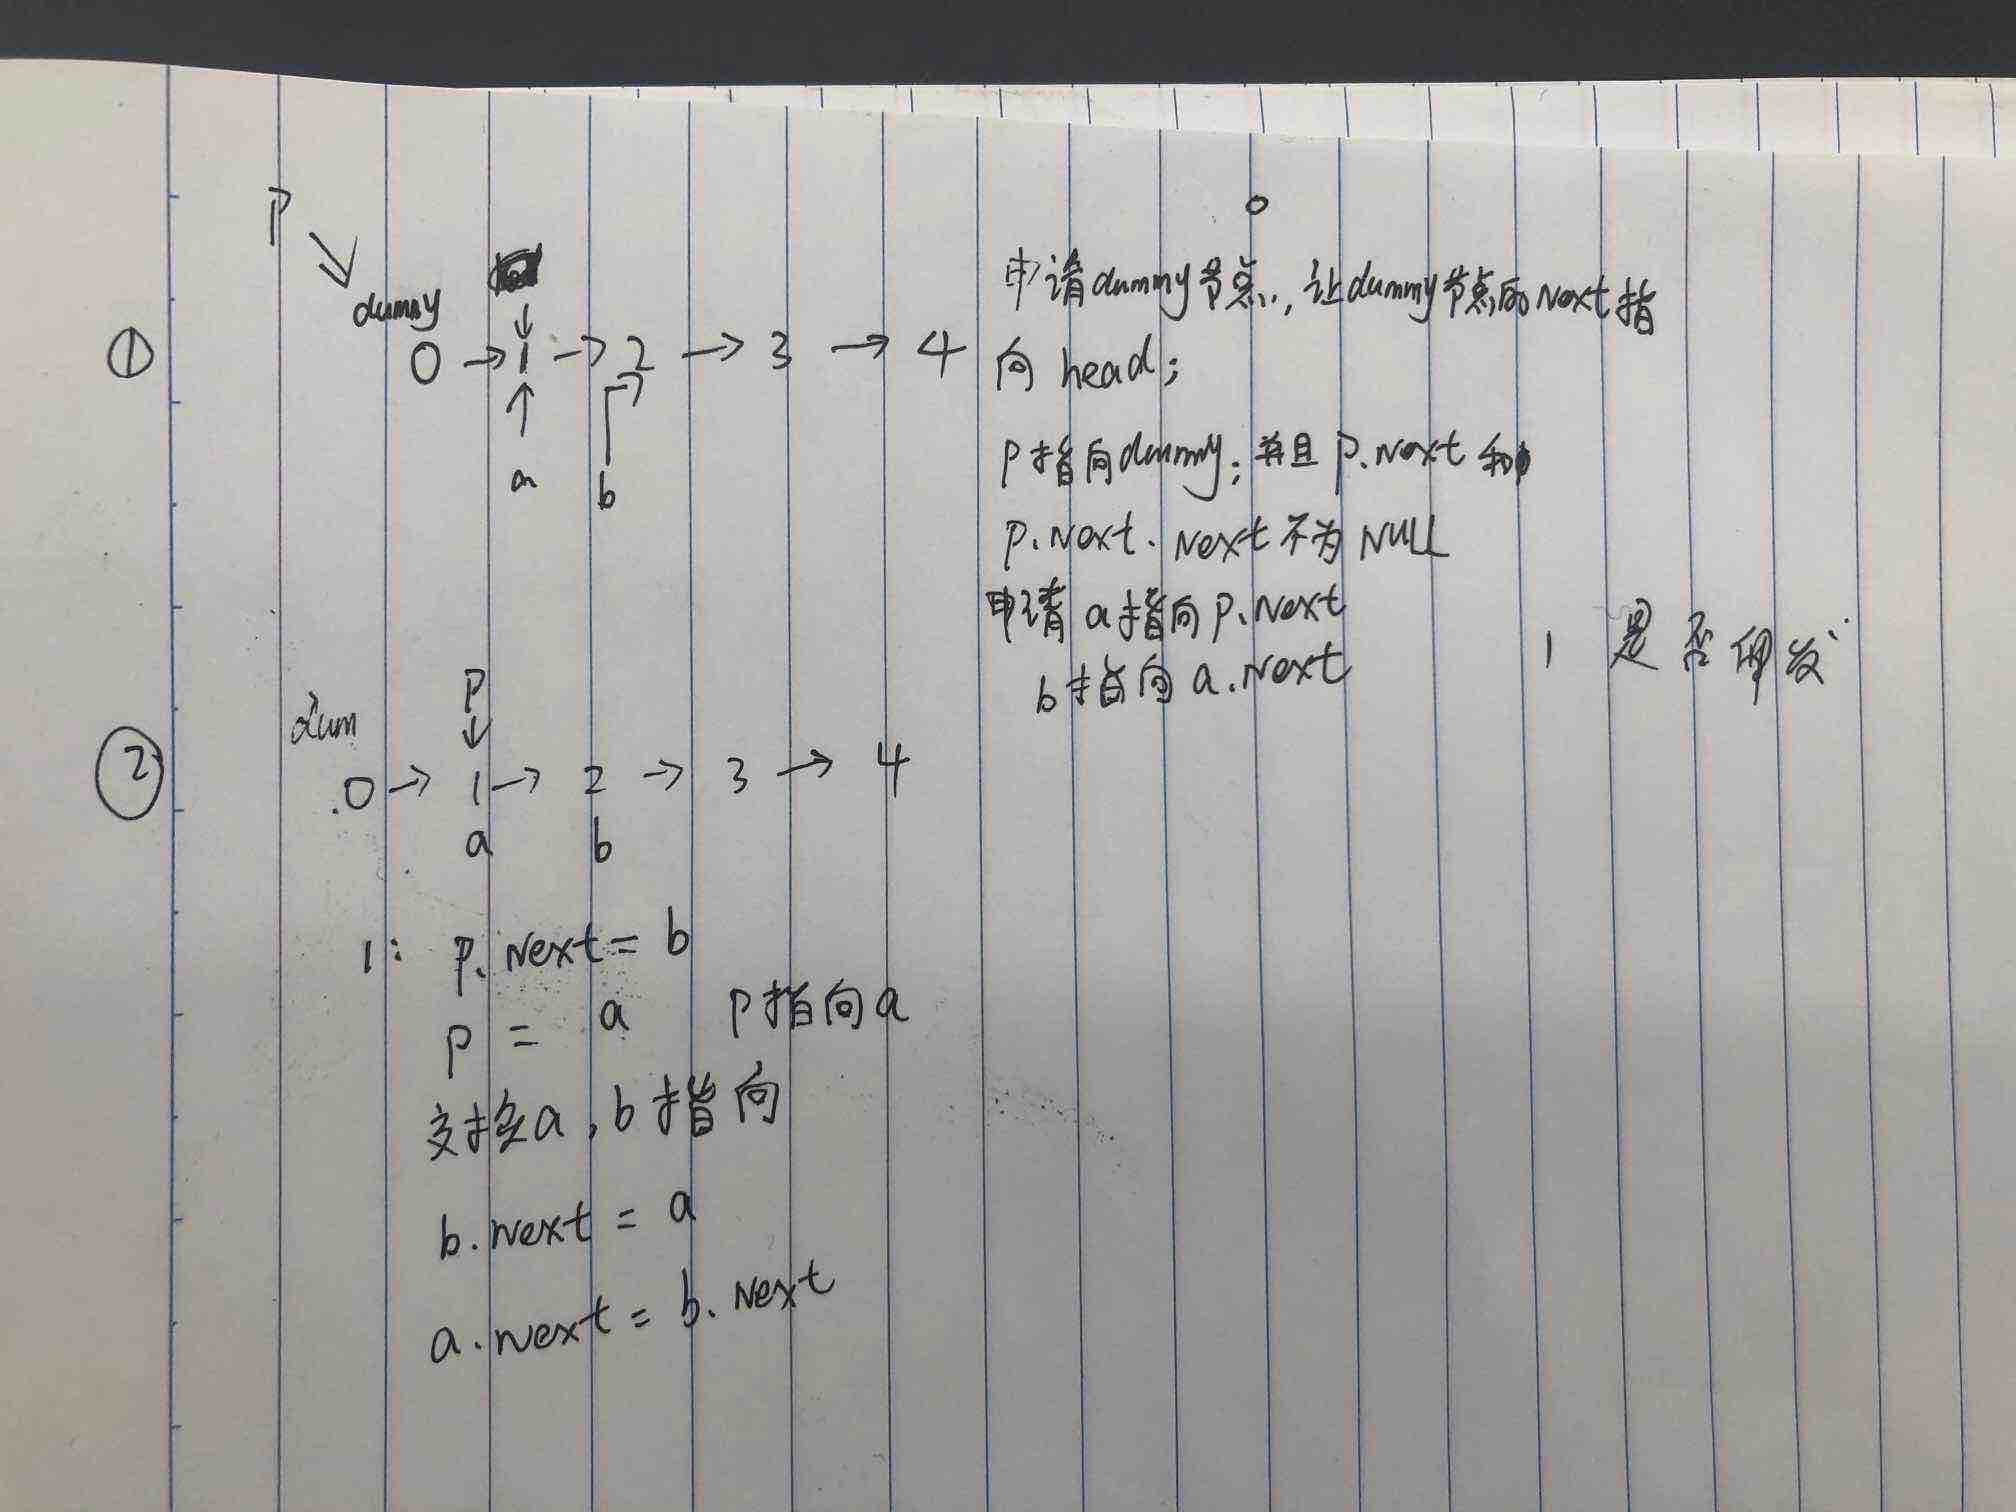 P
dummy
① 0 → 1 → 2 → 3 → 4
a
b
申请dummy节点,让dummy节点的Next指
向 head;
P指向dummy;并且 P.Next 和
P.Next.Next不为NULL
申请 a指向P.Next
b指向 a.Next
1 是否
dum
P
② 0 → 1 → 2 → 3 → 4
a b
1: P.Next = b
P = a P指向a
交换a,b指向
b.Next = a
a.Next = b.Next